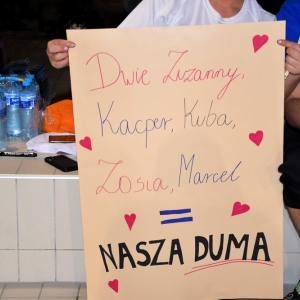 Dwie Zuzanny,
Kacper, Kuba,
Zosia, Marcel
=
NASZA DUMA